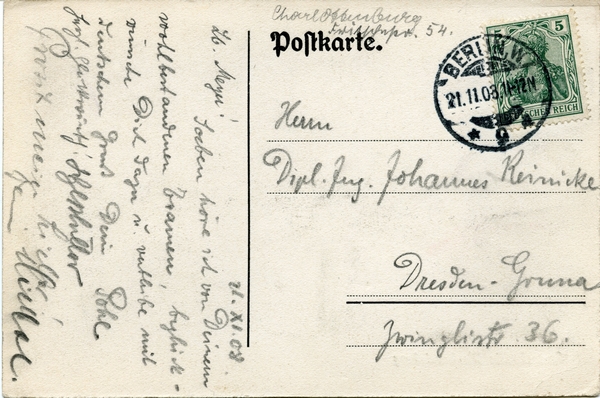 Charlottenburg
Fritschestr. 54.
Postkarte.
BERLIN W.
21.11.08.11-12N
* 9 *
5
DEUTSCHES REICH
Herrn
Dipl.-Ing. Johannes Reinicke
Dresden-Gruna
Zwinglistr 36.
21. XI. 08.
Lb. Meyer! Soeben höre ich von Deinem
wohlbestandenen Examen, beglück-
wünsche Dich dazu u. verbleibe mit
deutschem Gruß Dein Pohl.
Herzl. Glückwunsch!
Prosit